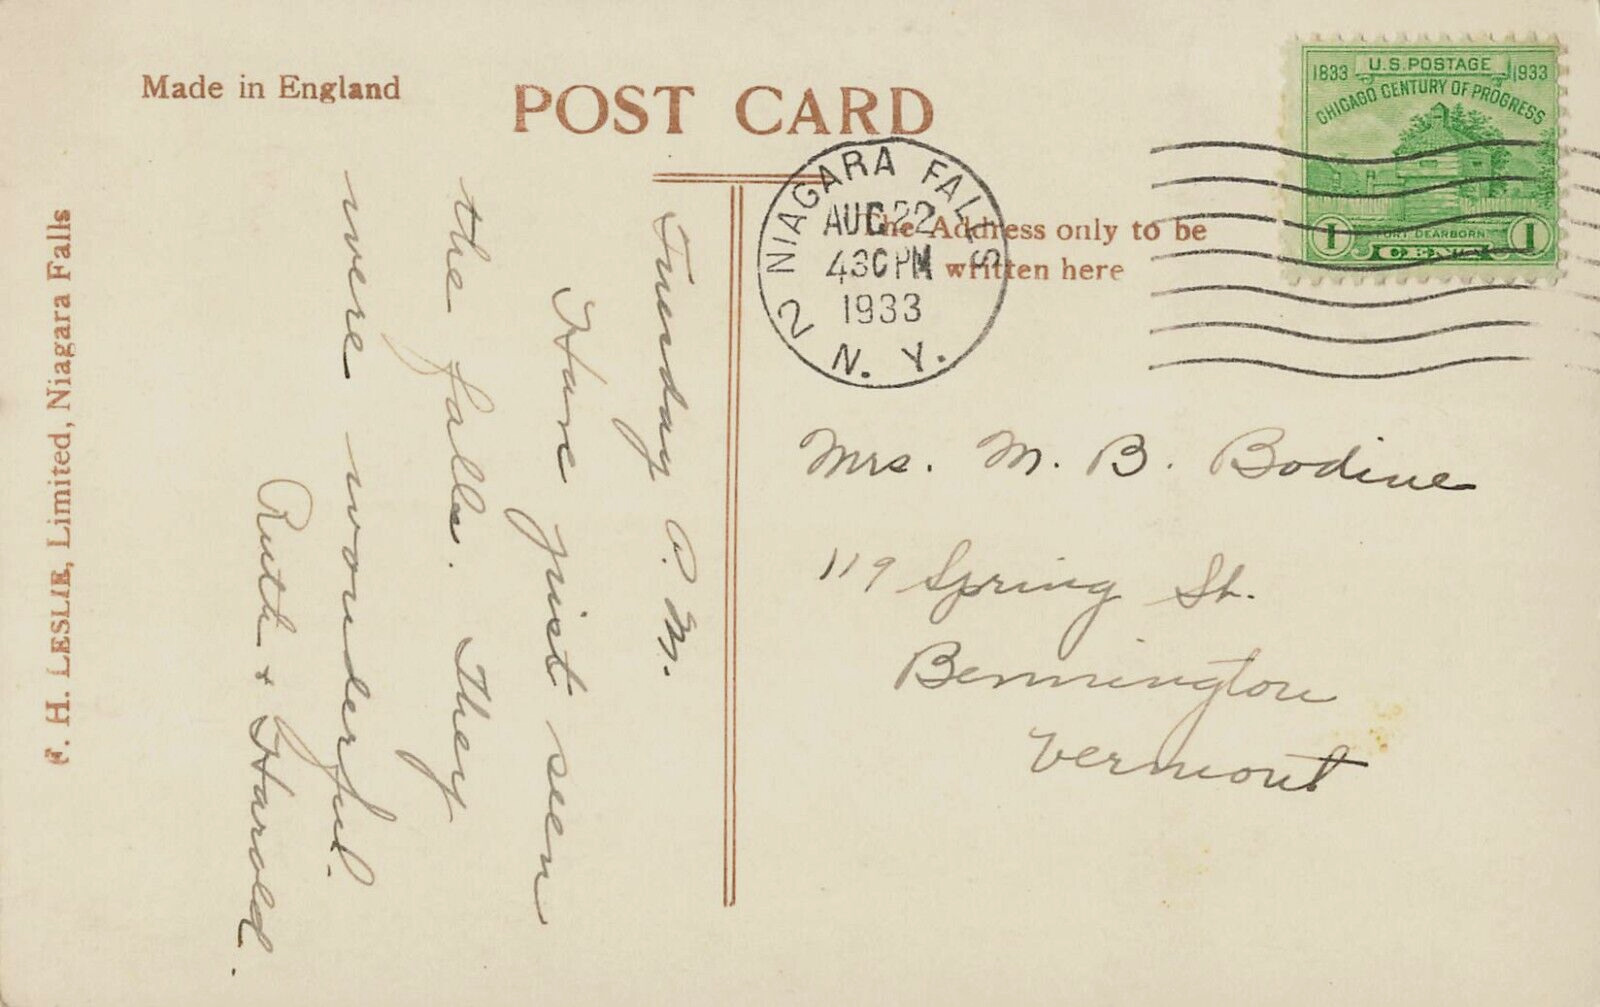 Made in England
POST CARD
U.S. POSTAGE
1833 1933
CHICAGO CENTURY OF PROGRESS
FORT DEARBORN
1 CENT 1
NIAGARA FALLS
2
AUG 22
430 PM
1933
N. Y.
The Address only to be
written here
F. H. LESLIE, Limited, Niagara Falls
Tuesday P. M.
Have just seen
the falls. They
were wonderful.
Ruth + Harold.
Mrs. M. B. Bodine
119 Spring St.
Bennington
Vermont